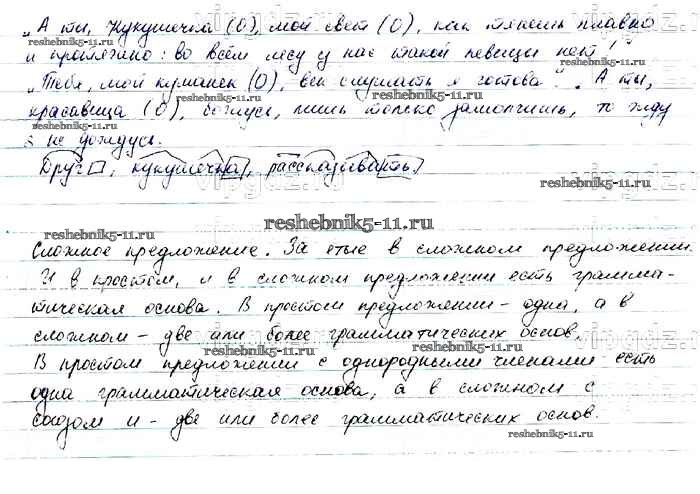 „А ты, Кукушечка (О), мой свет (О), как тянешь плавно
и протяжно: во всём лесу у нас такой певицы нет!"
„Тебя, мой куманёк (О), век слушать я готова". „А ты,
красавица (О), божусь, лишь только замолчишь, то жду
я не дождусь.
Друг, кукушечка, рассказывать
reshebnik5-11.ru
Сложное предложение. Запятые в сложном предложении.
И в простом, и в сложном предложении есть грамма-
тическая основа. В простом предложении - одна, а в
сложном - две или более грамматических основ.
В простом предложении с однородными членами есть
одна грамматическая основа, а в сложном с
союзом и - две или более грамматических основ.
reshebnik5-11.ru